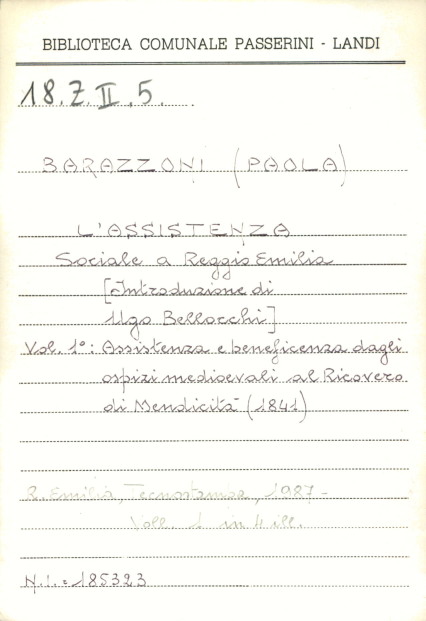 BIBLIOTECA COMUNALE PASSERINI - LANDI
18.Z.II.5.
BARAZZONI (PAOLA)
L'ASSISTENZA
Sociale a Reggio Emilia
[Introduzione di
Ugo Bellocchi]
Vol. 1°: Assistenza e beneficenza dagli
ospizi medioevali al Ricovero
di Mendicità (1841)
R. Emilia, Tecnostampa, 1987-
Voll. 1 in 4 ill.
N.I. = 185323